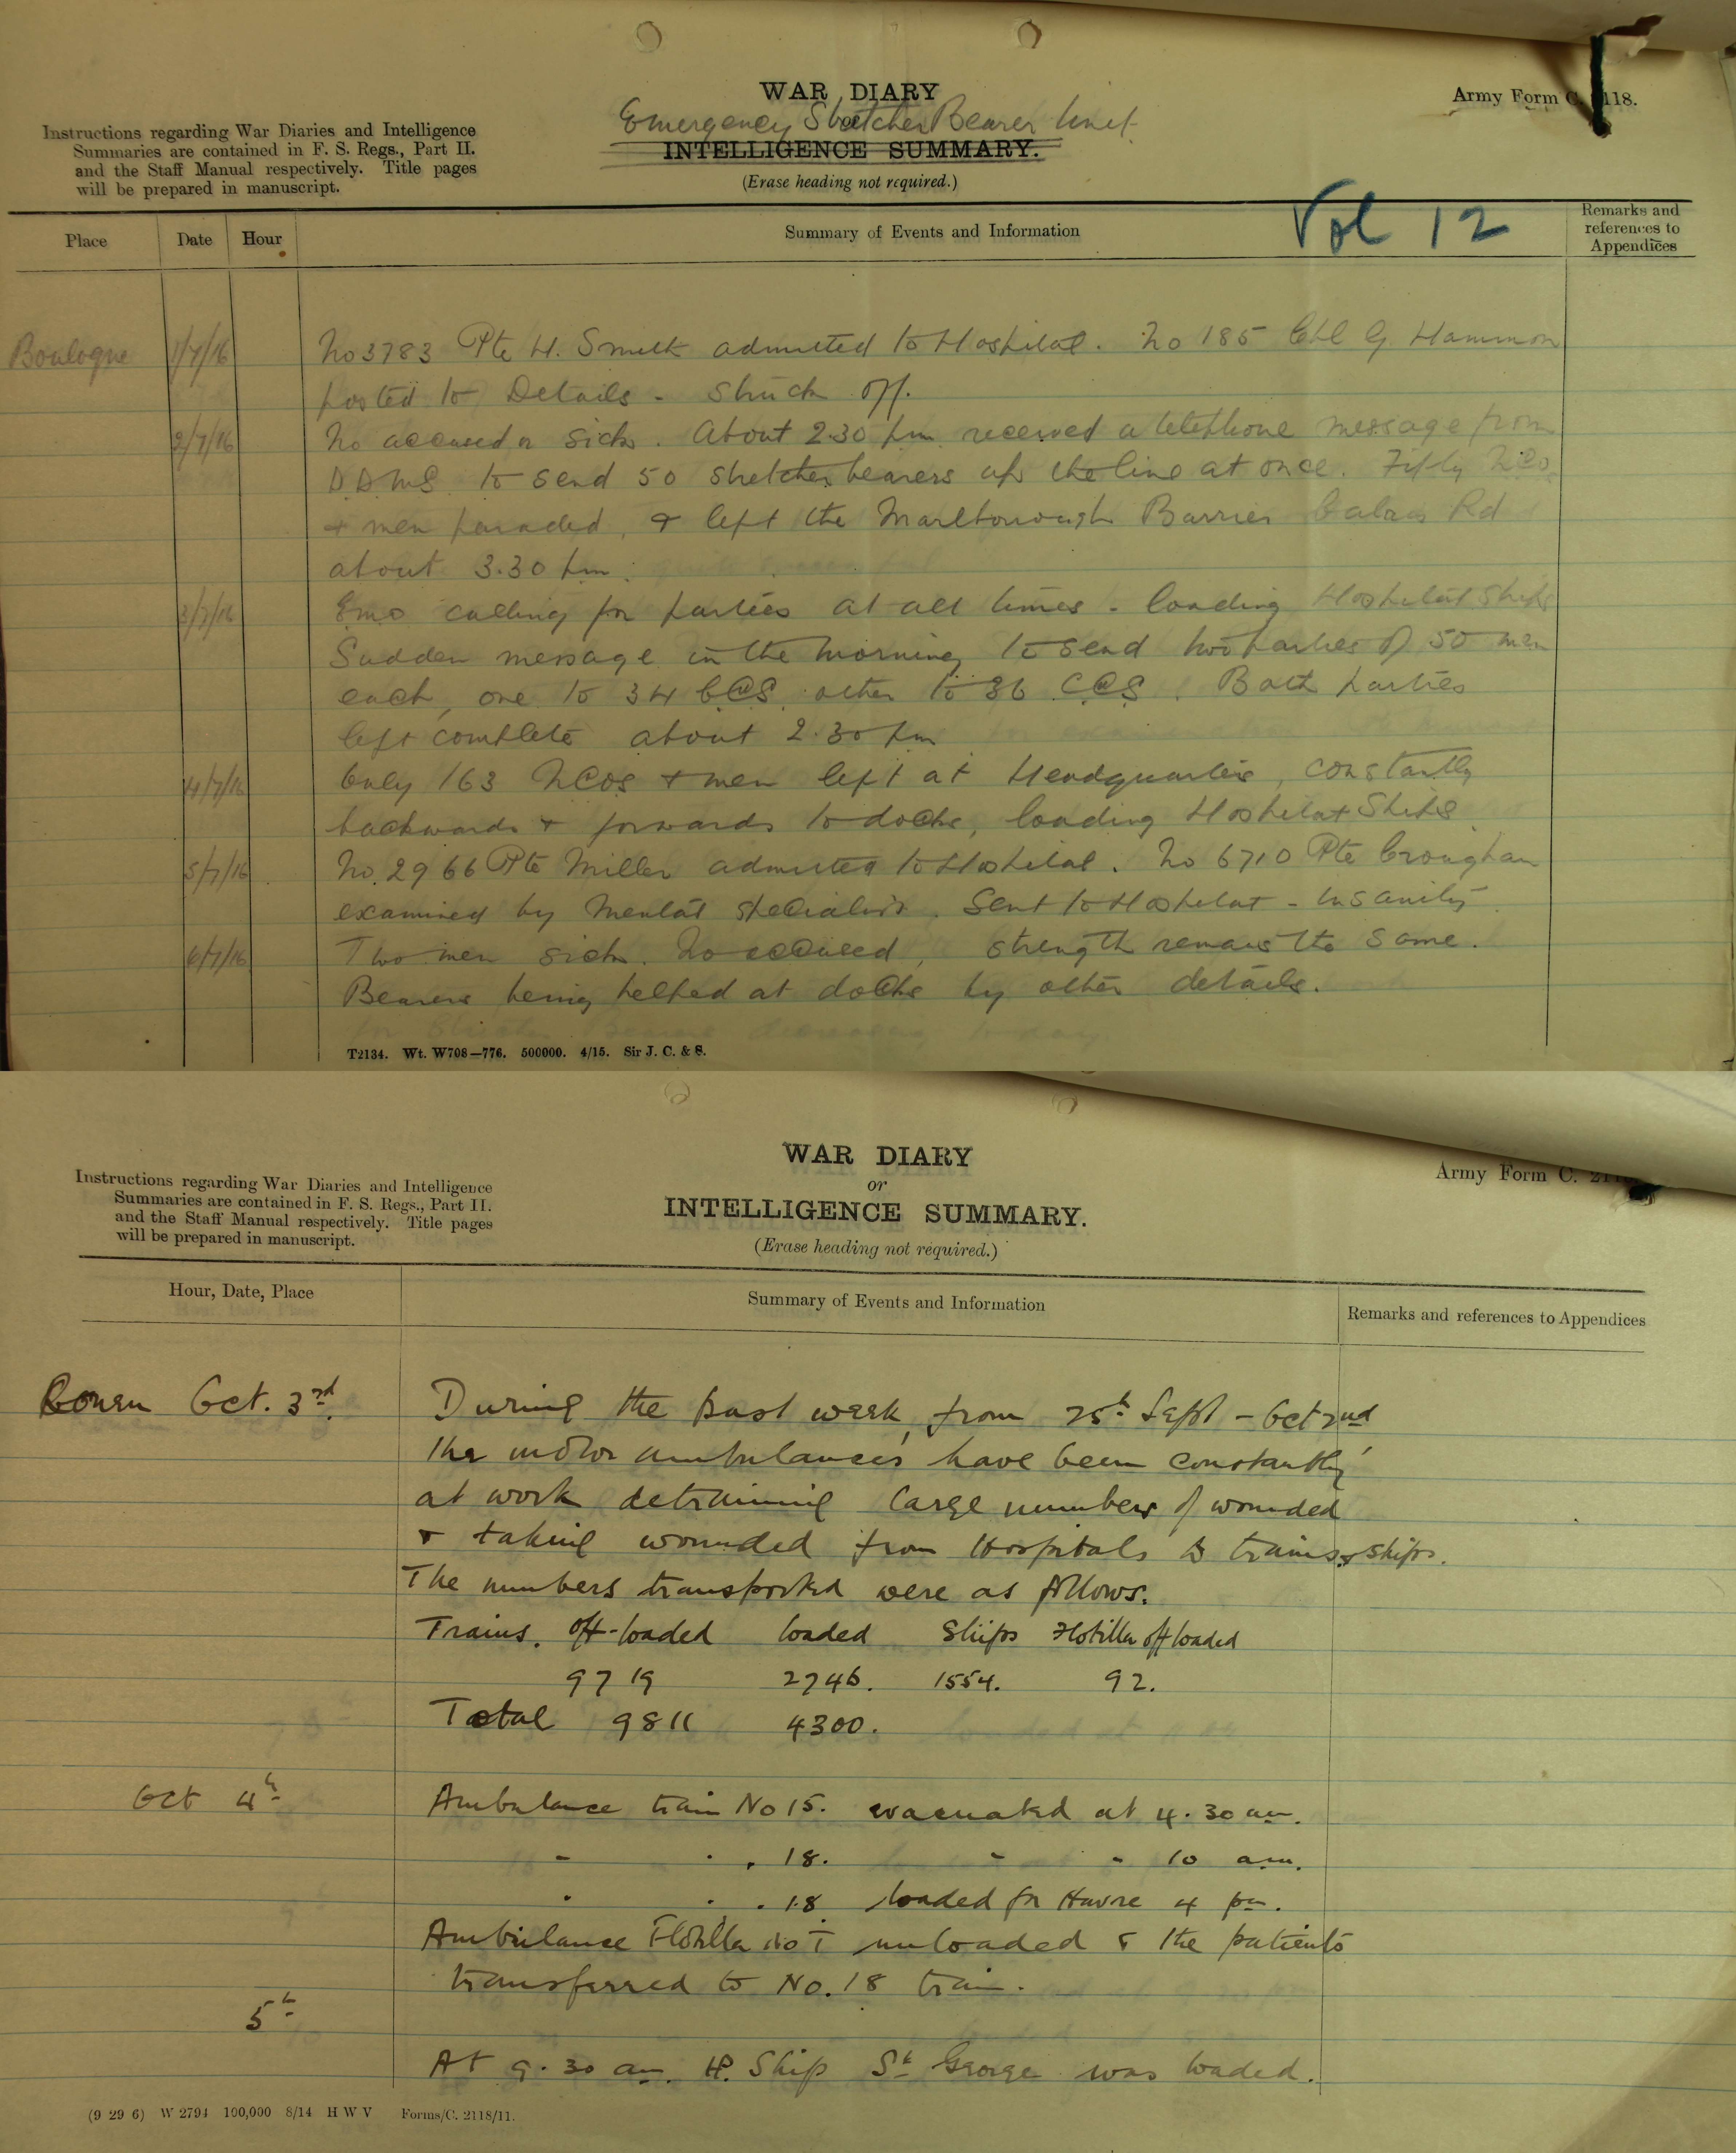 WAR DIARY
Army Form C. 2118.
Emergency Stretcher Bearer Unit
or
INTELLIGENCE SUMMARY.
(Erase heading not required.)
Instructions regarding War Diaries and Intelligence
Summaries are contained in F. S. Regs., Part II.
and the Staff Manual respectively. Title pages
will be prepared in manuscript.
Vol 12
Place Date Hour Summary of Events and Information Remarks and references to Appendices
Boulogne 1/7/16 No 3783 Pte H. Smith admitted to Hospital. No 185 G. Hammon
posted to Details - Struck off.
2/7/16 No accused or sick. About 2.30 pm received a telephone message from
D.D.M.S. to send 50 stretcher bearers up the line at once. Fifty NCOs
& men paraded, & left the Marlborough Barrier Calais Rd
about 3.30 pm.
3/7/16 EMO calling for parties at all times - loading Hospital Ships
Sudden message in the morning to send two parties of 50 men
each, one to 34 CCS, other to 36 CCS. Both parties
left complete about 2.30 pm
4/7/16 Only 163 NCOs & men left at Headquarters, constantly
backwards & forwards to docks, loading Hospital Ships.
5/7/16 No. 2966 Pte Miller admitted to Hospital. No 6710 Pte Croughan
examined by Mental specialist. Sent to Hospital - Insanity.
6/7/16 Two men sick. No accused, strength remains the same.
Bearers being helped at docks by other details.
T2134. Wt. W708—776. 500000. 4/15. Sir J. C. & S.
WAR DIARY
or
INTELLIGENCE SUMMARY.
(Erase heading not required.)
Army Form C. 211
Instructions regarding War Diaries and Intelligence
Summaries are contained in F. S. Regs., Part II.
and the Staff Manual respectively. Title pages
will be prepared in manuscript.
Hour, Date, Place Summary of Events and Information Remarks and references to Appendices
Rouen Oct. 3rd. During the past week, from 25th Sept - Oct 2nd
the motor ambulances have been constantly
at work detraining large numbers of wounded
& taking wounded from Hospitals to trains & ships.
The numbers transported were as follows.
Trains. off-loaded loaded Ships Flotilla off loaded
9719 2746. 1554. 92.
Total 9811 4300.
Oct 4th Ambulance train No 15. evacuated at 4.30 am.
- . „ 18. - - 10 am.
. . . 18 loaded for Havre 4 pm.
Ambulance Flotilla No I unloaded & the patients
transferred to No. 18 train.
5th
At 9.30 am. H. Ship St George was loaded.
(9 29 6) W 2794 100,000 8/14 H W V Forms/C. 2118/11.